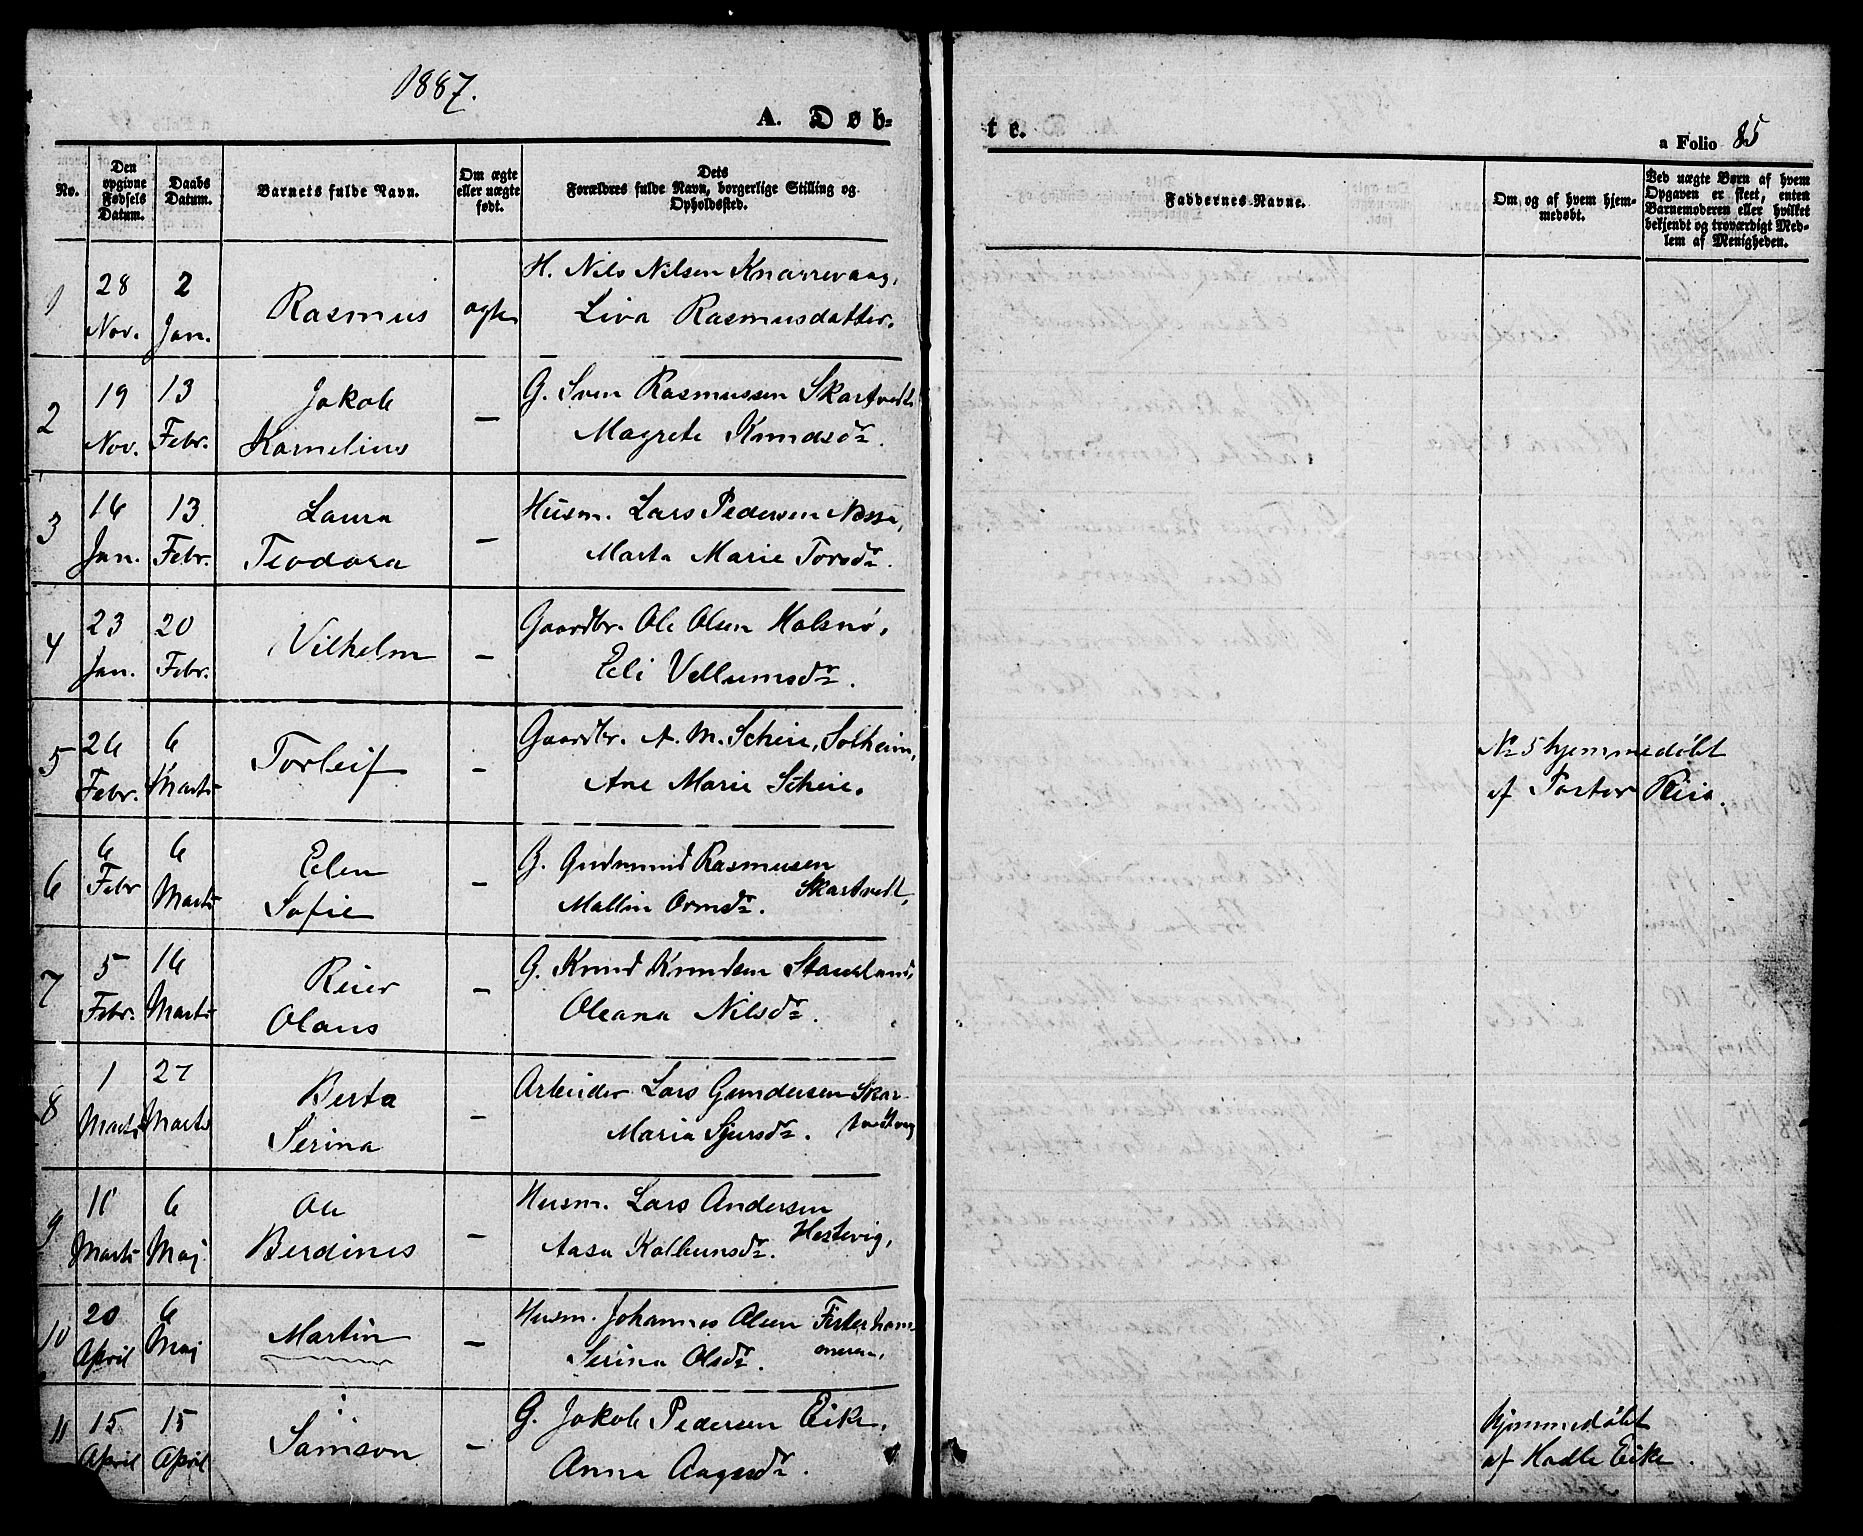 1887.
A. Døb-
te.
a Folio 85
No.
Den opgivne Fødsels Datum.
Daabs Datum.
Barnets fulde Navn.
Om ægte eller uægte født.
Dets Forældres fulde Navn, borgerlige Stilling og Opholdssted.
Faddernes Navne.
Om og af hvem hjemmedøbt.
Ved uægte Børn af hvem Opgaven er skeet, enten Barnemoderen eller hvilket bekjendt og troværdigt Medlem af Menigheden.
1 28 Nov. 2 Jan. Rasmus ægte H. Nils Nilsen Knarrevaag,
Liva Rasmusdatter.
2 19 Nov. 13 Febr. Jakob Kornelius — G. Sven Rasmussen Skartvedt
Magrete Knudsdr.
3 16 Jan. 13 Febr. Laura Teodora — Husm. Lars Pedersen Nessa,
Marta Marie Torsdr.
4 23 Jan. 20 Febr. Vilhelm — Gaardbr. Ole Olsen Halsnø,
Eli Vellumsdr.
5 26 Febr. 6 Marts Torleif — Gaardbr. A. M. Scheie, Solheim,
Ane Marie Scheie.
No 5 hjemmedøbt
af Pastor
6 6 Febr 6 Marts Elen Sofie — G. Gudmund Rasmusen
Skartvedt,
Mallin Ormsdr.
7 5 Febr. 16 Marts Reier Olaus — G. Knud Knudsen
Oleana Nilsdr.
8 1 Marts 27 Marts Berta Serina — Arbeider Lars Gundersen Skar-
Maria Sjursdr.
9 11 Marts 6 Maj Ole Berdines — Husm. Lars Andersen
Hestevig,
Aasa Kolbensdr.
10 20 April 6 Maj Martin — Husm. Johannes Olsen Fisterham-
Serina Olsdr. meren,
11 15 April 15 April Samson — G. Jakob Pedersen Eike,
Anna Aagesdr.
hjemmedøbt
af Hadle Eike.